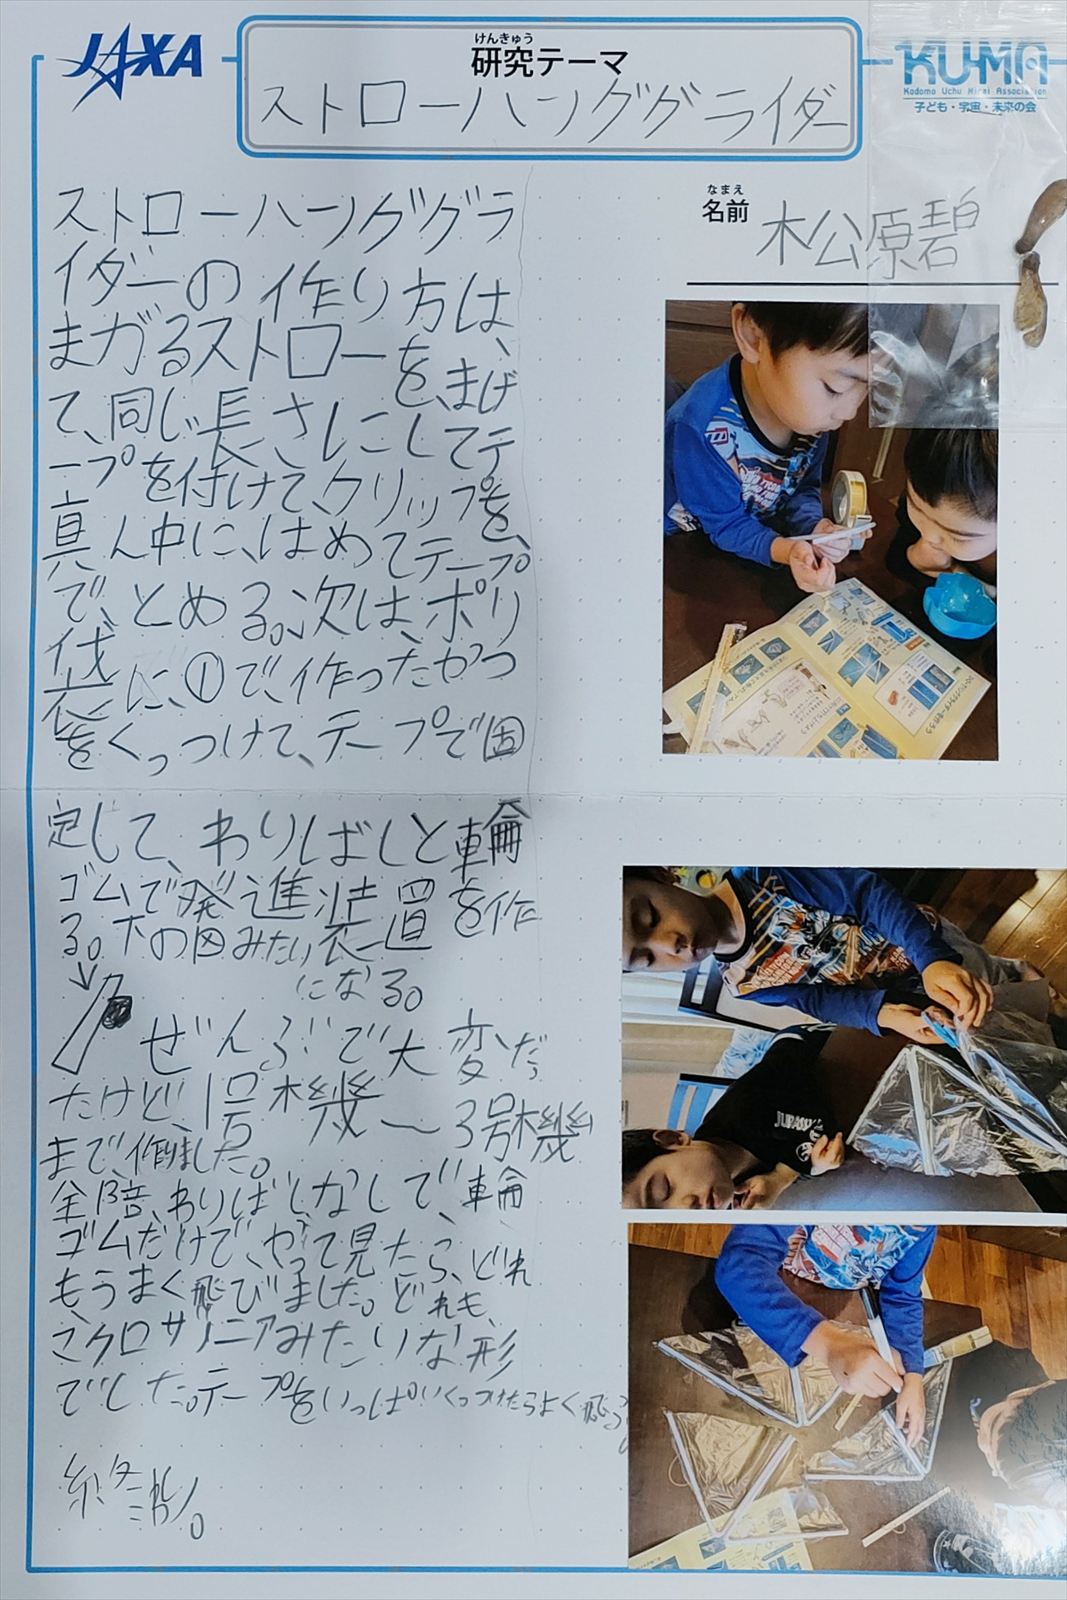 JAXA
けんきゅう
研究テーマ
ストローハンググライダー
KU-MA
Kodomo Uchu Mirai Association
子ども・宇宙・未来の会
なまえ
名前
松原碧
ストローハンググラ
イダーの作り方は、
まガるストローを、まげ
て、同じ長さにしてテ
ープを付けて、クリップを、
真ん中に、はめてテープ
で、とめる。次は、ポリ
袋に、①で、作ったやつ
をくっつけて、テープで固
定して、わりばしと輪
ゴムで発進装置を作
る。下の図みたい
になる。
ぜんぶで大変だっ
たけど、1号機〜3号機
まで、作りました。
全部、わりばしなしで、輪
ゴムだけで、やって見たら、どれ
もうまく飛びました。どれも、
マクロサノニアみたいな形
でした。テープをいっぱいくっつけたらよく飛ぶ
JURASSI